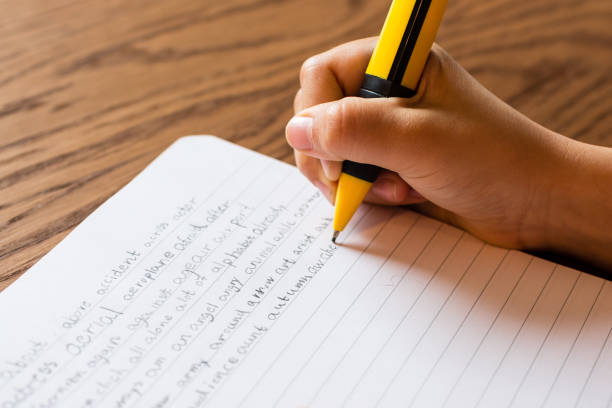 about above accident across actor
address aerial aeroplane afraid after
afternoon again against age air airport
all alone a lot of alphabet already
always am an angel angry animal ankle
army around arrow art artist
audience aunt autumn awake